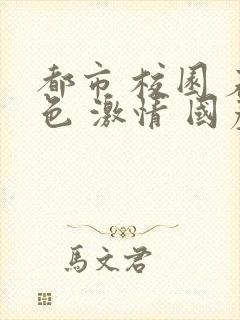 都市 校園
色 激情 國
馬文君